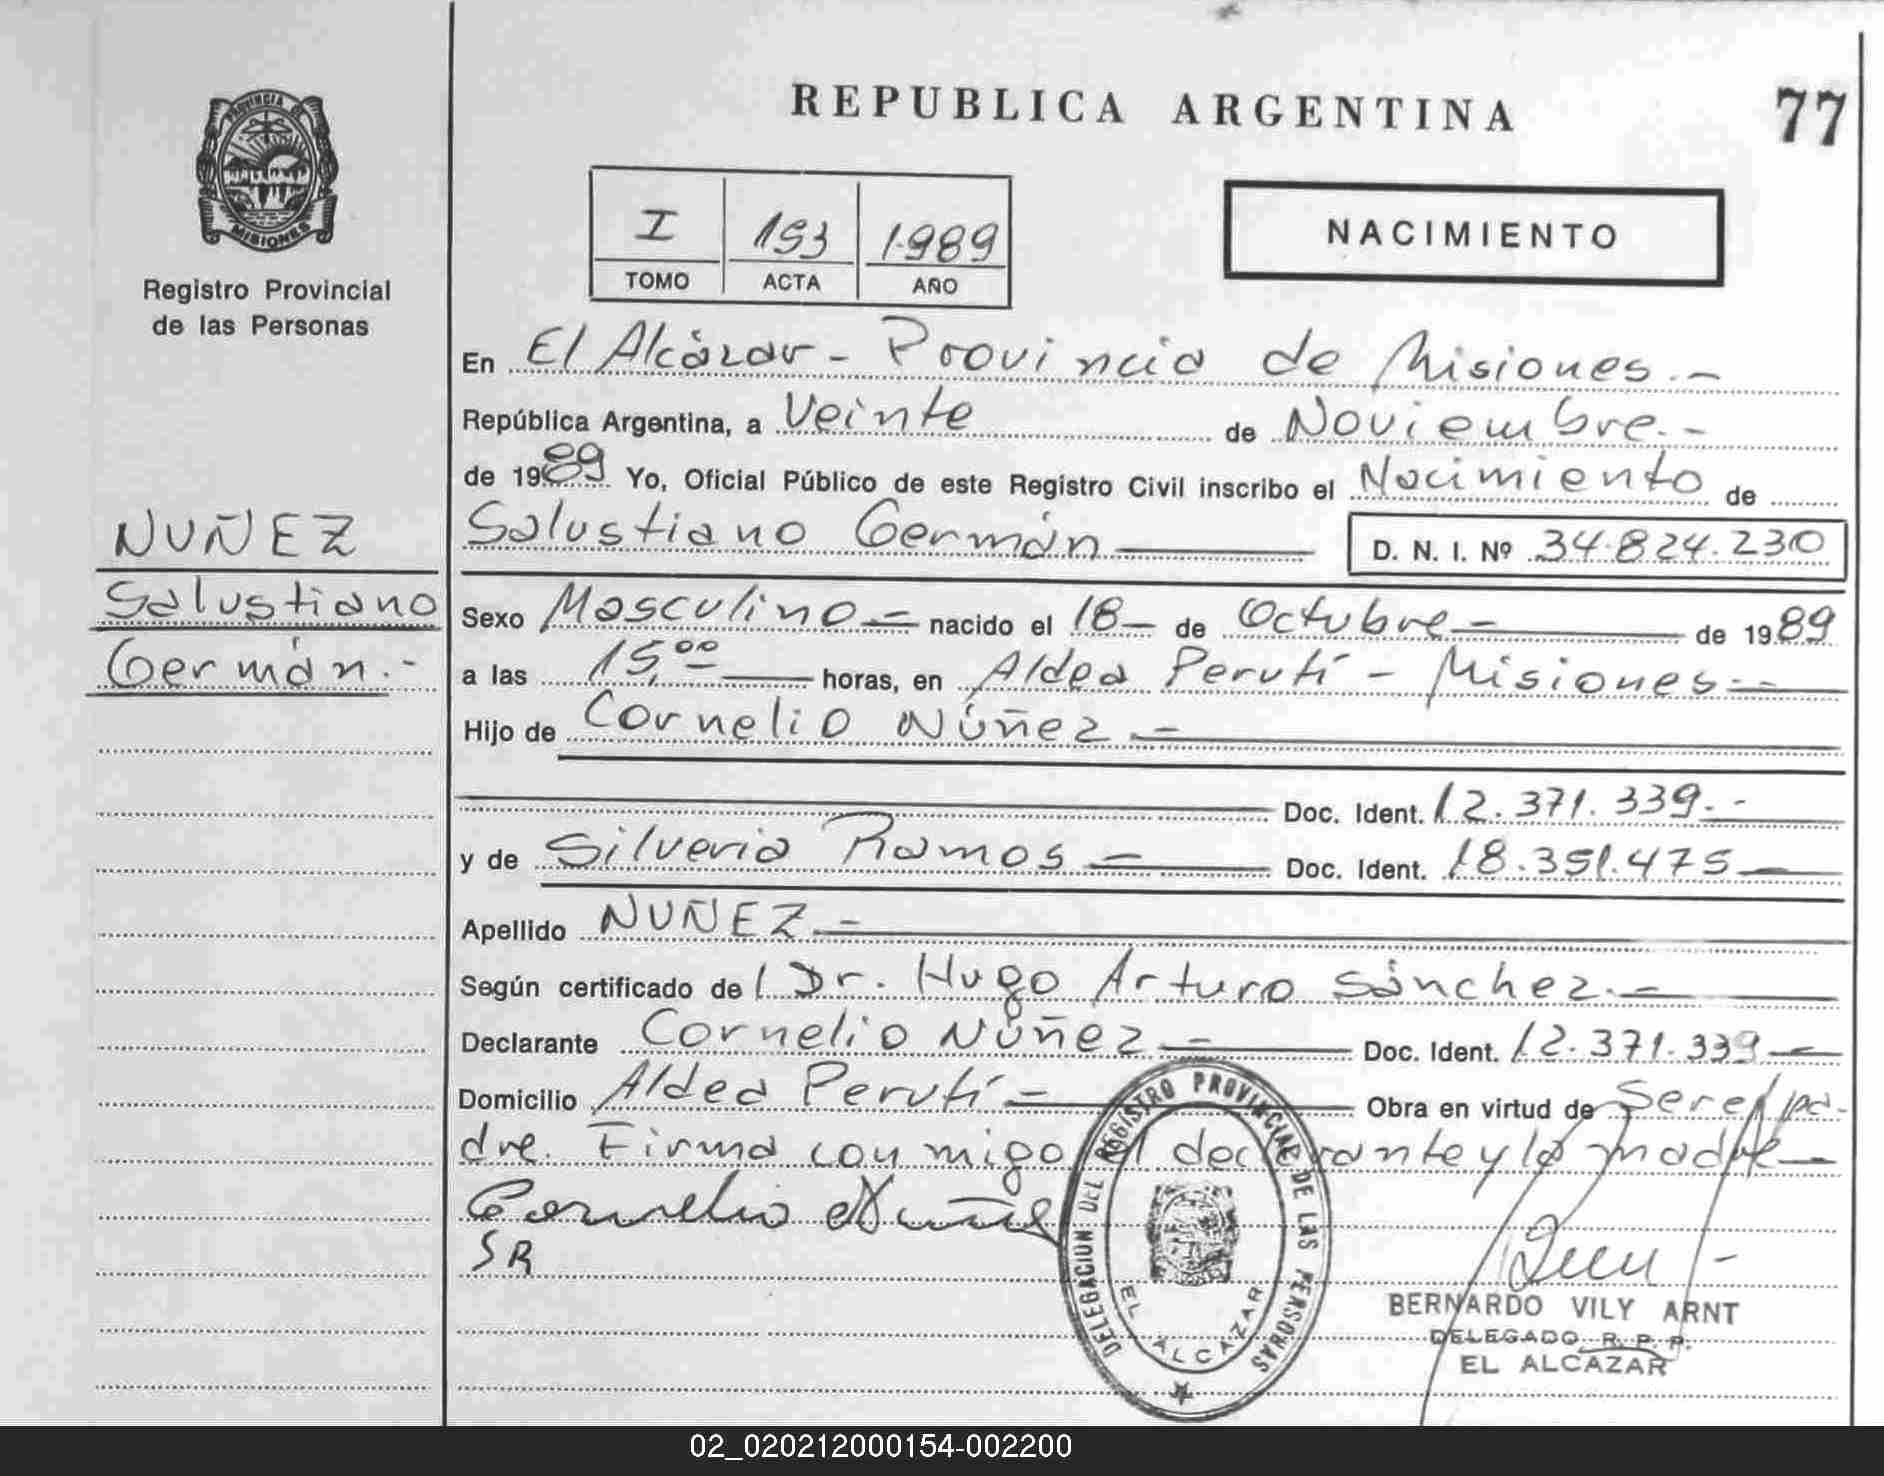 REPUBLICA ARGENTINA
77
PROVINCIA
MISIONES
Registro Provincial
de las Personas
I 153 1989
TOMO ACTA AÑO
NACIMIENTO
En El Alcázar - Provincia de Misiones.-
República Argentina, a Veinte de Noviembre.-
de 1989 Yo, Oficial Público de este Registro Civil inscribo el Nacimiento de
Salustiano Germán D. N. I. Nº 34.824.230
NUÑEZ
Salustiano
Germán.-
Sexo Masculino - nacido el 18 - de Octubre - de 1989
a las 15,00 horas, en Aldea Perutí - Misiones -
Hijo de Cornelio Núñez -
Doc. Ident. 12.371.339.-
y de Silveria Ramos - Doc. Ident. 18.351.475
Apellido NUÑEZ -
Según certificado de Dr. Hugo Arturo Sánchez.-
Declarante Cornelio Núñez - Doc. Ident. 12.371.339
Domicilio Aldea Perutí - Obra en virtud de Ser el pa-
dre. Firma conmigo el declarante y la madre
Cornelio Nuñez
SR
DELEGACION DEL REGISTRO PROVINCIAL DE LAS PERSONAS
EL ALCAZAR
BERNARDO VILY ARNT
DELEGADO R. P. P.
EL ALCAZAR
02_020212000154-002200